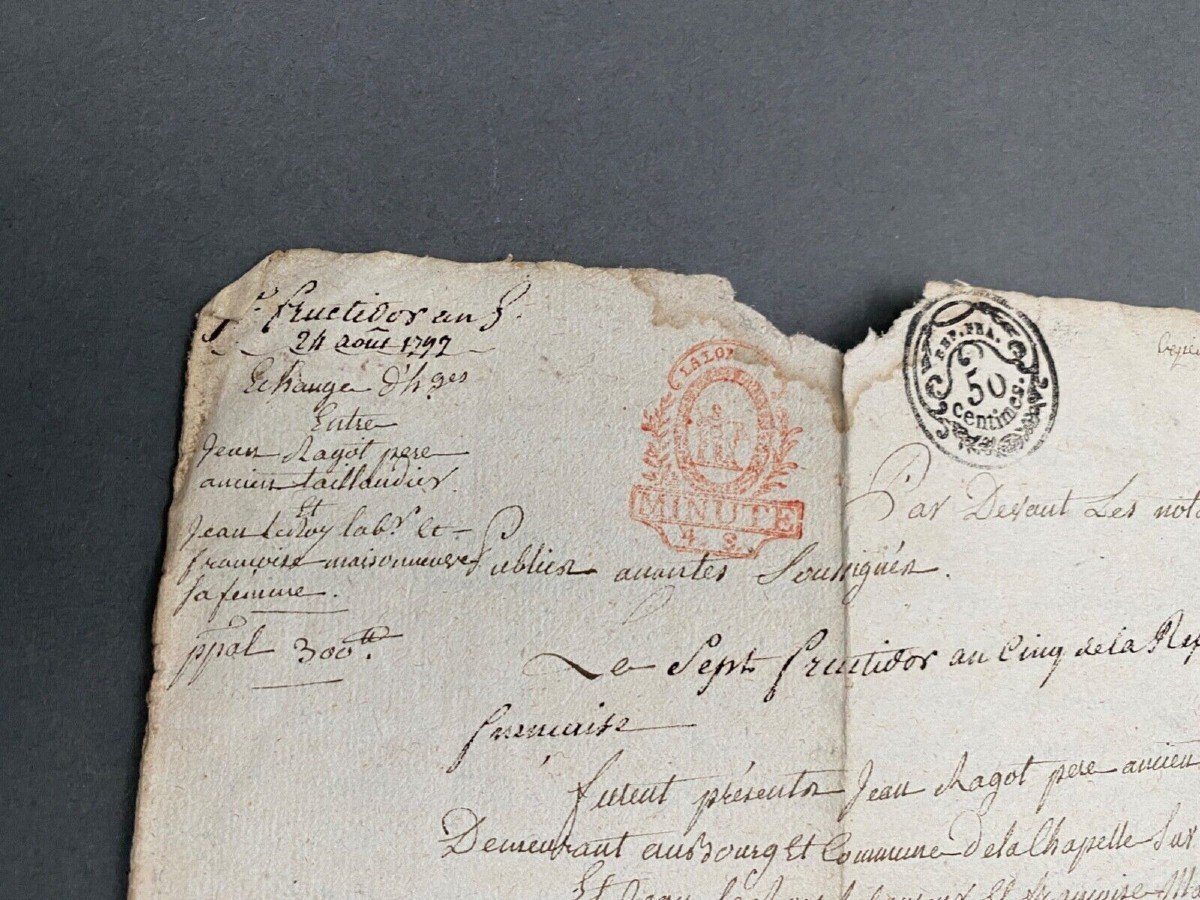 7 fructidor an 5.
24 août 1797
Echange d'hges
Entre
Jean Ragot pere
ancien taillandier.
Et
Jean Leroy labr. Et
françoise maisonneuve
sa femme.
ppal 300tt.
LA LOI
MINUTE
4. S.
REP. FRA.
50
centimes.
Par Devant Les nota
Publics avantes Soussignés.
Le Sept fructidor an Cinq de la Rep
francaise
furent présents Jean Ragot pere ancien
Demeurant au Bourg Et Commune De la Chapelle Sur
Et Jean